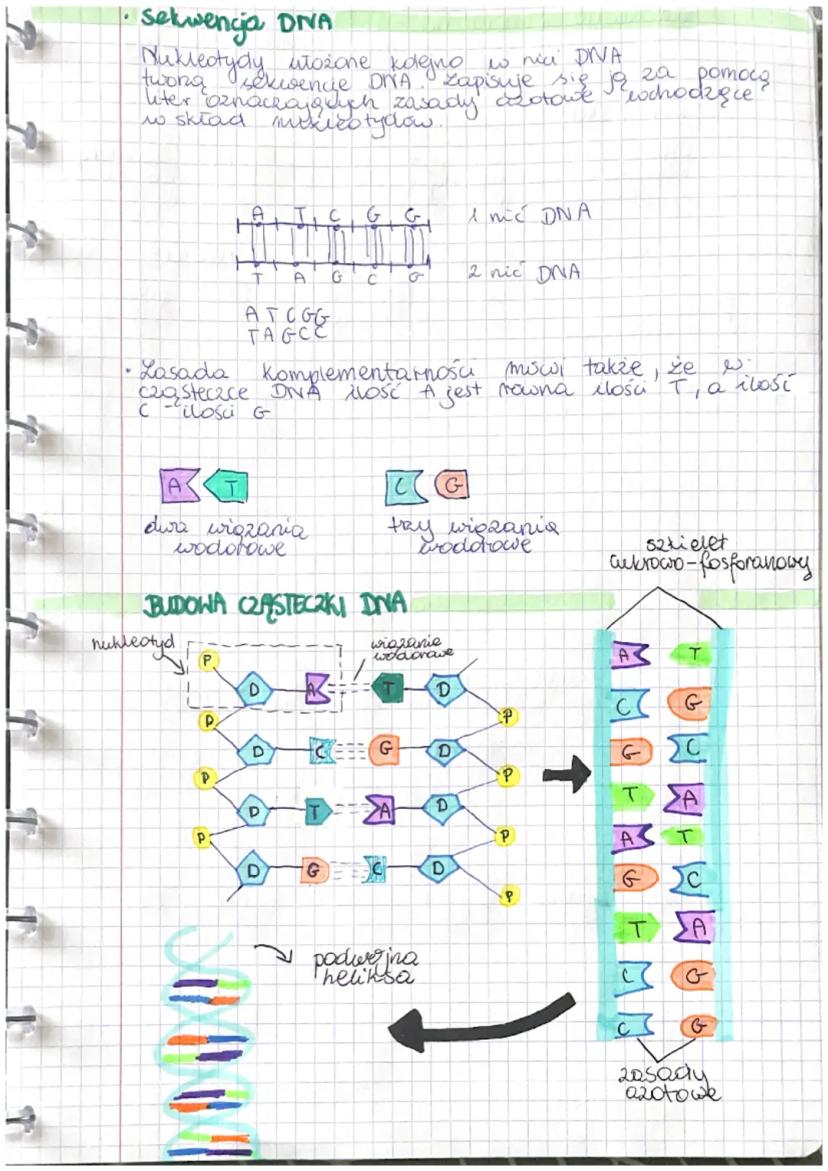 • Sekwencja DNA
Nukleotydy ułożone kolejno w nici DNA
tworzą sekwencję DNA. Zapisuje się ją za pomocą
liter oznaczających zasady azotowe wchodzące
w skład nukleotydów.
A T C G G 1 nić DNA
T A G C G 2 nić DNA
ATCGG
TAGCC
• Zasada komplementarności mówi także, że w
cząsteczce DNA ilość A jest równa ilości T, a ilość
C - ilości G
A T C G
dwa wiązania trzy wiązania
wodorowe wodorowe
szkielet
cukrowo-fosforanowy
BUDOWA CZĄSTECZKI DNA
nukleotyd
wiązanie
wodorowe
P
D A T D
P P
D C G D
P P
D T A D
P P
D G C D
P
A T
C G
G C
T A
A T
G C
T A
C G
C G
podwójna
heliksa
zasady
azotowe